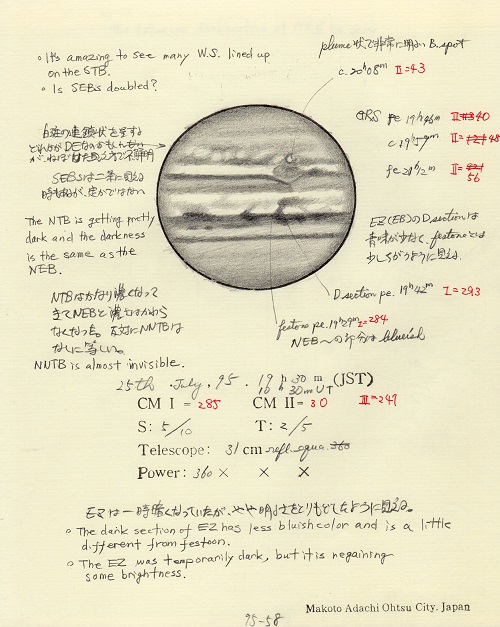 ○ It's amazing to see many W.S. lined up
on the STB.
○ Is SEBs doubled?
plume状で非常に明るい B. spot
c. 20h08m II=43
GRS pc 19h46m II 40
c 19h59m II= 48
fc 20h12m II= 56
SEBsは二条に見える
時もあるが、定かではない
The NTB is getting pretty
dark and the darkness
is the same as the
NEB.
EZ(EB)のD.sectionは
青味が少なく、festoonとは
少しちがうように見える。
NTBはかなり濃くなって
きてNEBと濃さはかわら
なくなった。反対にNNTBは
なしに等しい。
NNTB is almost invisible.
D.section pc. 19h42m I=293
festoon pc. 19h29m I=284
NEBへの部分は bluish
25th. July. 95. 19h 30m (JST)
10h 30m UT
CM I = 285 CM II = 30 III=247
S: 5/10 T: 2/5
Telescope: 31 cm refl. equa.
Power: 360 × × ×
EZは一時暗くなっていたが、やや明るさをとりもどしたように見える。
○ The dark section of EZ has less bluish color and is a little
different from festoon.
○ The EZ was temporarily dark, but it is regaining
some brightness.
Makoto Adachi Ohtsu City. Japan
95-58